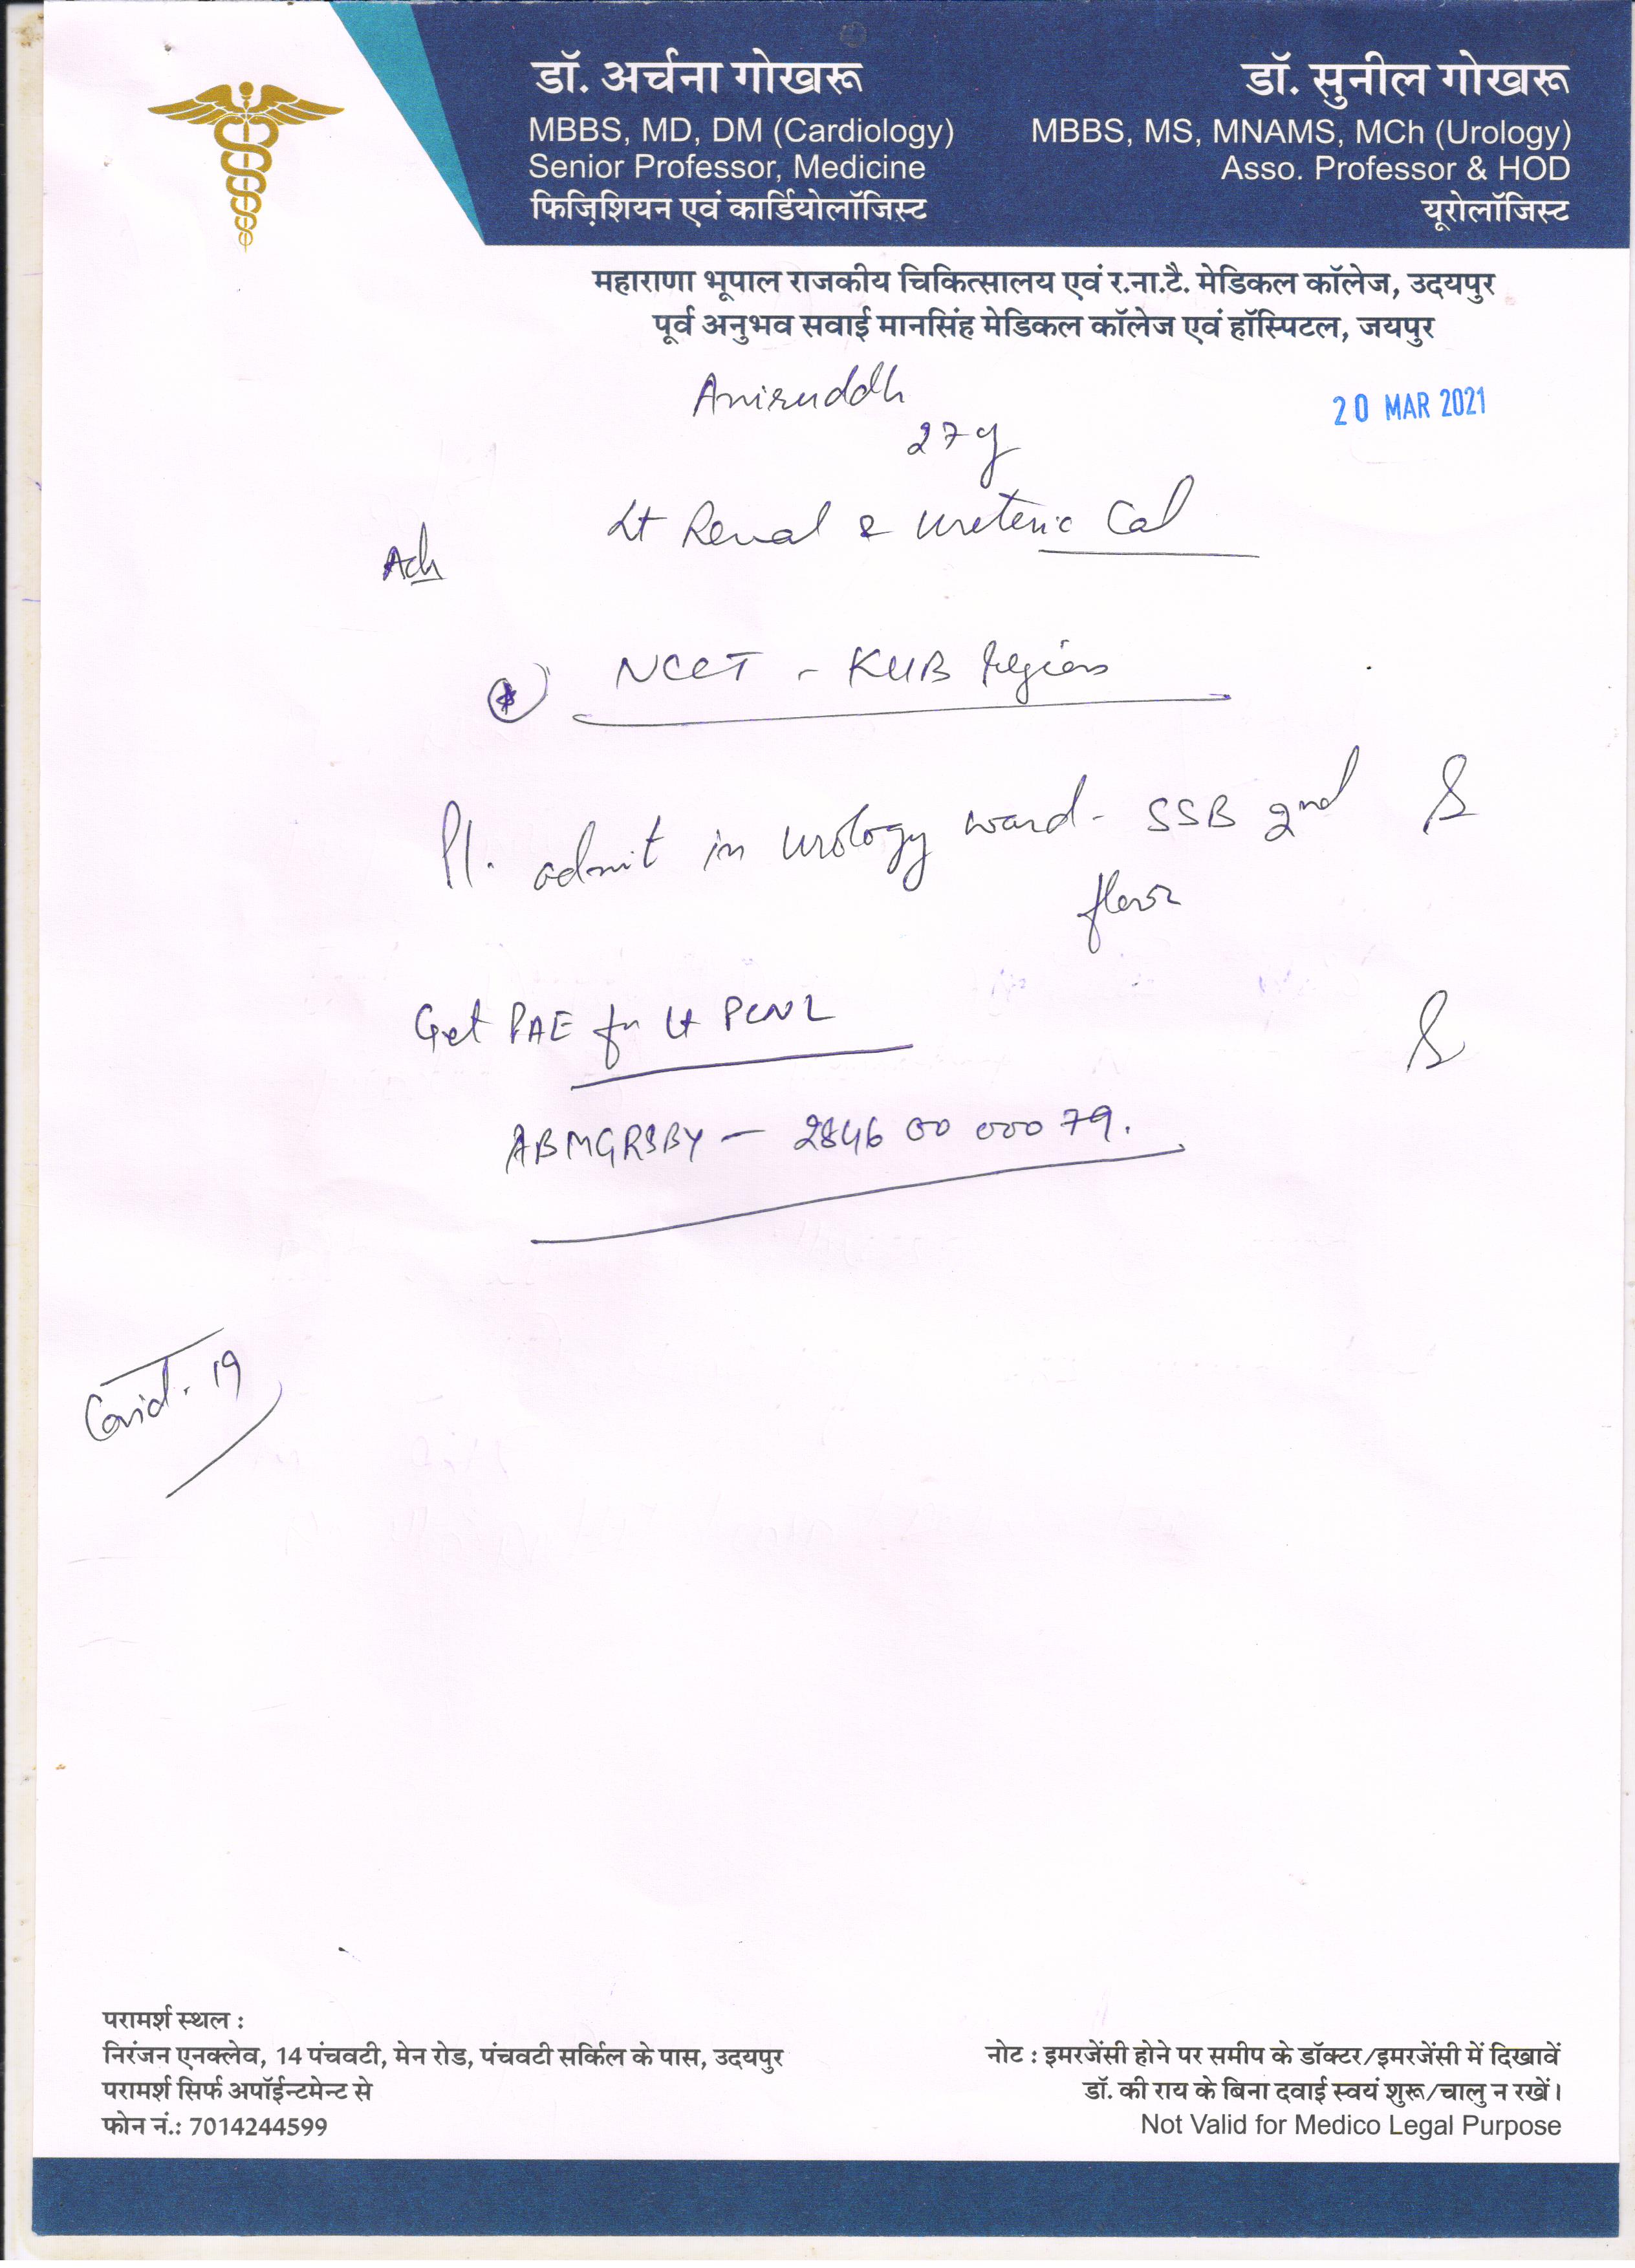 डॉ. अर्चना गोखरू
MBBS, MD, DM (Cardiology)
Senior Professor, Medicine
फिज़िशियन एवं कार्डियोलॉजिस्ट
डॉ. सुनील गोखरू
MBBS, MS, MNAMS, MCh (Urology)
Asso. Professor & HOD
यूरोलॉजिस्ट
महाराणा भूपाल राजकीय चिकित्सालय एवं र.ना.टै. मेडिकल कॉलेज, उदयपुर
पूर्व अनुभव सवाई मानसिंह मेडिकल कॉलेज एवं हॉस्पिटल, जयपुर
Aniruddh
20 MAR 2021
27y
Lt Renal & Ureteric Cal
NCCT - KUB Region
Pl. admit in urology ward - SSB 2nd
floor
Get PAE for Lt PCNL
ABMGRSBY - 2846 00 000 79.
Covid-19
परामर्श स्थल :
निरंजन एनक्लेव, 14 पंचवटी, मेन रोड, पंचवटी सर्किल के पास, उदयपुर
परामर्श सिर्फ अपॉईन्टमेन्ट से
फोन नं.: 7014244599
नोट : इमरजेंसी होने पर समीप के डॉक्टर/इमरजेंसी में दिखावें
डॉ. की राय के बिना दवाई स्वयं शुरू/चालु न रखें।
Not Valid for Medico Legal Purpose